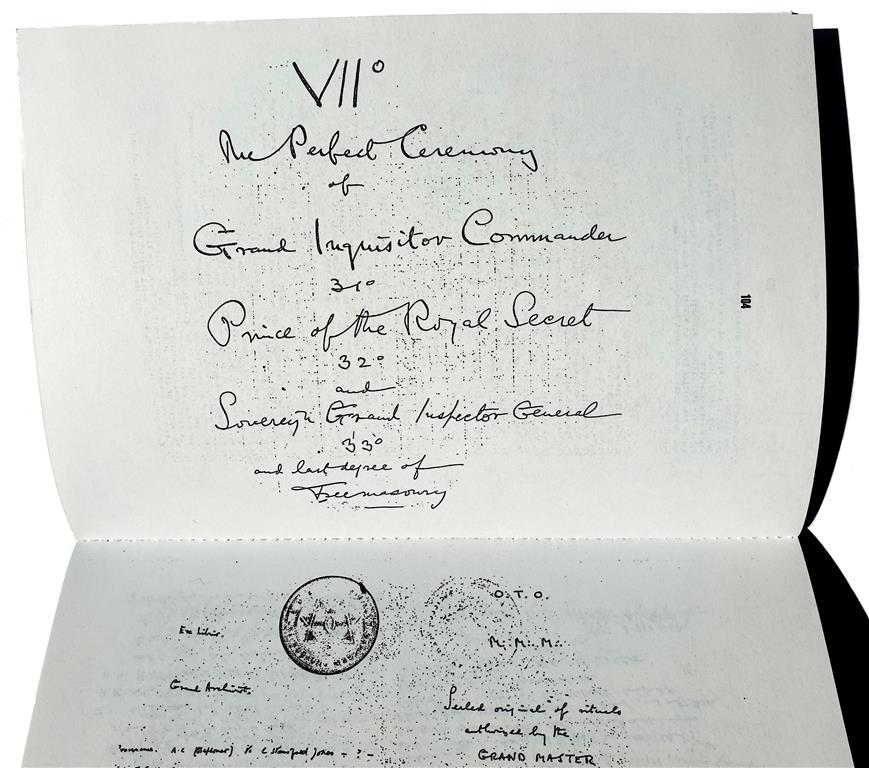 VII°
The Perfect Ceremony
of
Grand Inquisitor Commander
31°
Prince of the Royal Secret
32°
and
Sovereign Grand Inspector General
33°
and last degree of
Freemasonry
104
O.T.O.
Ex Libris.
M.·.M.·.M.·.
Grand Archivist.
Sealed original of rituals
authorised by the
A.C. (Baphomet) to C Stansfeld Jones - ? -
GRAND MASTER